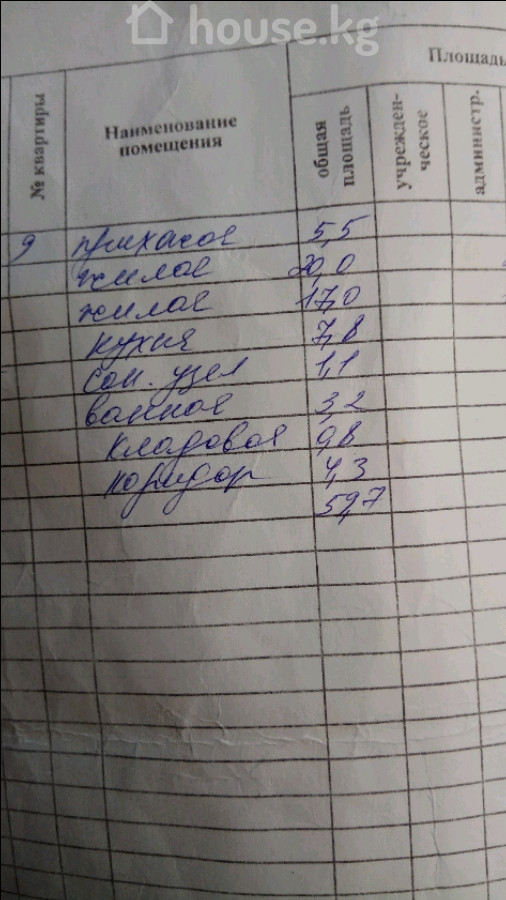 house.kg
Площадь
№ квартиры
Наименование помещения
общая площадь
учрежден-
ческое
администр.
9 прихожая 5,5
жилая 20,0
жилая 17,0
кухня 7,8
сан. узел 1,1
ванная 3,2
кладовая 0,8
коридор 4,3
59,7